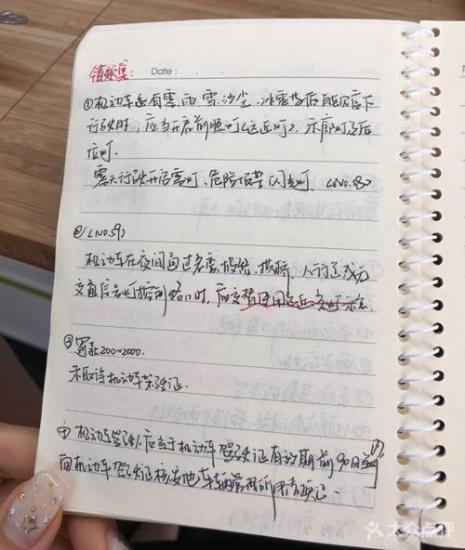 错题集: Date:
①机动车遇有雾、雨、雪、沙尘、冰雹等低能见度下
行驶时，应当开启前照灯(近光灯)、示廓灯及后
位灯。
雾天行驶开启雾灯、危险报警闪光灯. (No.8)
②(No.9)
机动车在夜间通过急弯、坡路、拱桥、人行道或
交通信号灯控制路口时，应交替使用远近光灯示意.
③罚款200~2000.
未取得机动车驾驶证.
④机动车驾驶人应当于机动车驾驶证有效期前90日
向机动车驾驶证核发地车辆管理所申请换证
大众点评